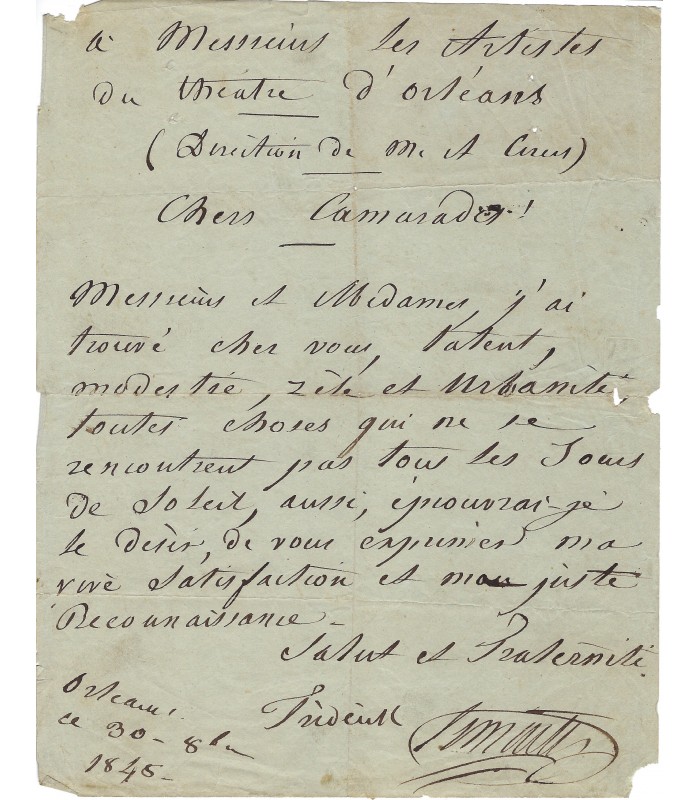 à Messieurs les Artistes
du théâtre d'orléans
(Direction de Mr et
Chers Camarades!
Messieurs et Medames, j'ai
trouvé cher vous, talent,
modestie, zèle et Urbanité
toutes choses qui ne se
rencontrent pas tous les Jours
de Soleil, aussi, éprouvrai-je
le désir, de vous exprimer ma
vive Satisfaction et ma juste
Reconnaissance -
Salut et Fraternité
Frédérick
Orléans
ce 30 - 8bre
1845 -